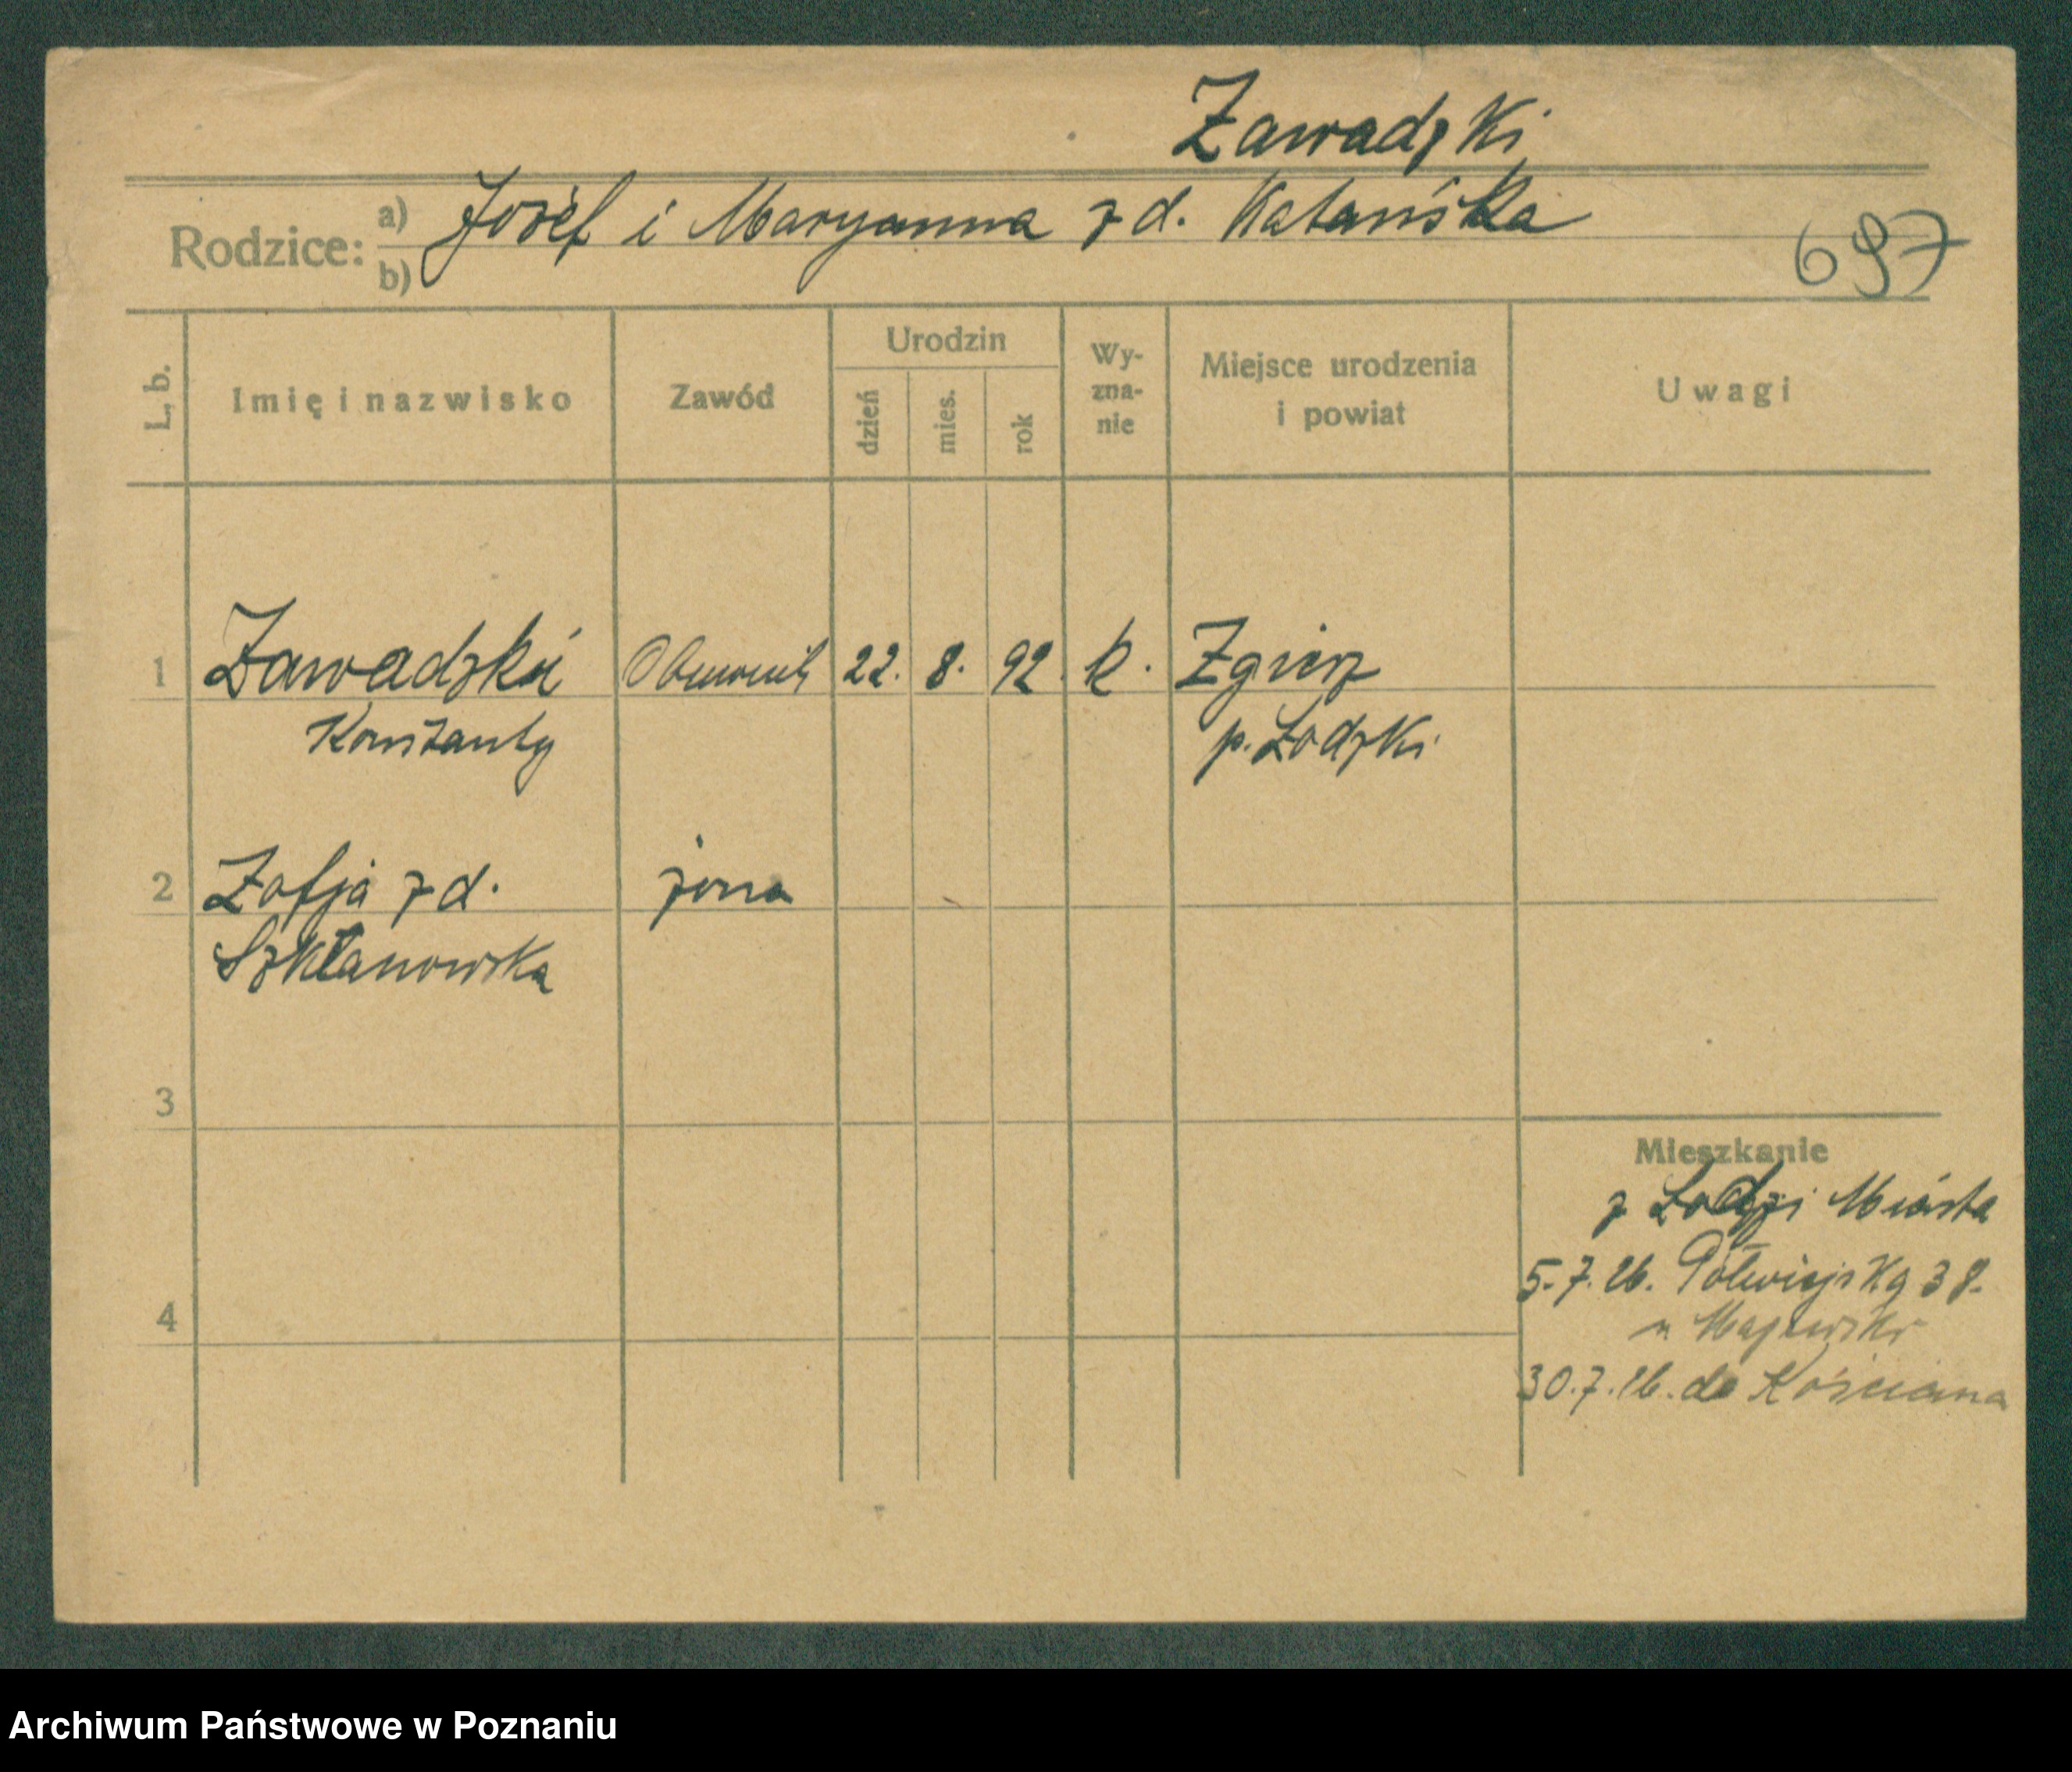 Zawadzki
Rodzice: a) Józef i Maryanna z d. Katańska
b)
697
L. b.
Imię i nazwisko
Zawód
Urodzin
dzień
mies.
rok
Wy-
zna-
nie
Miejsce urodzenia
i powiat
Uwagi
1 Zawadzki 22. 8. 92. k. Zgierz
Konstanty p. Łodzki
2 Zofja z d. żona
Szkłanowska
3
4
Mieszkanie
z Łodzi Miasta
5.7.26. Półwiejska 38.
u Majewski
30.7.26. do Kościana
Archiwum Państwowe w Poznaniu